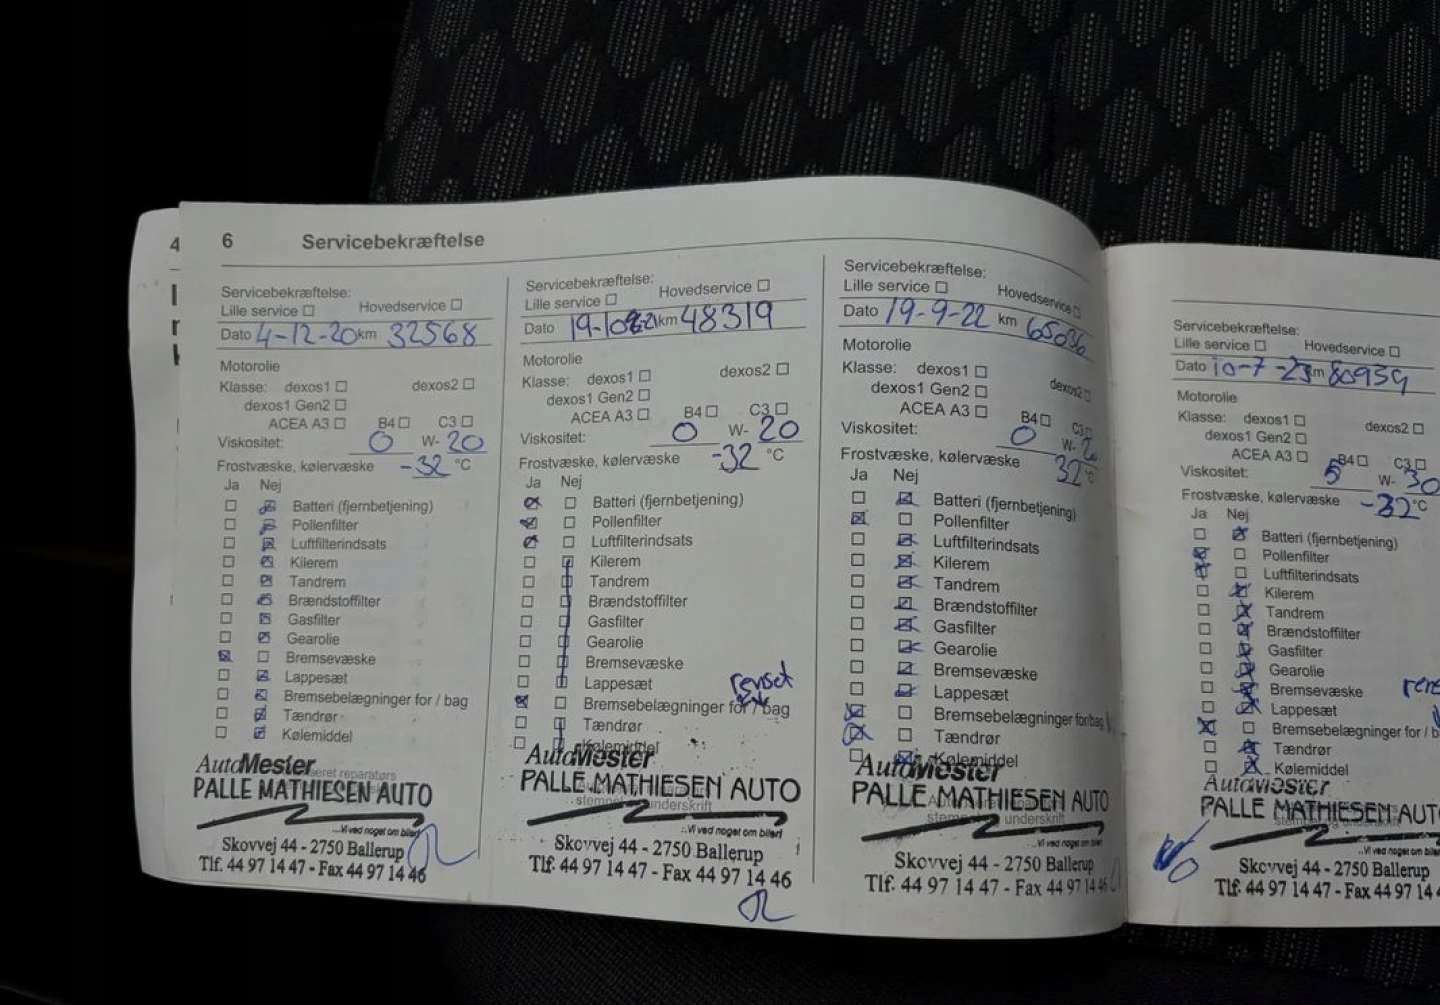 4
6 Servicebekræftelse
Servicebekræftelse:
Lille service Hovedservice
Dato 4-12-20 km 32568
Motorolie
Klasse: dexos1 dexos2
dexos1 Gen2
ACEA A3 B4 C3
Viskositet: 0 W- 20
Frostvæske, kølervæske -32 °C
Ja Nej
Batteri (fjernbetjening)
Pollenfilter
Luftfilterindsats
Kilerem
Tandrem
Brændstoffilter
Gasfilter
Gearolie
Bremsevæske
Lappesæt
Bremsebelægninger for / bag
Tændrør
Kølemiddel
AutoMester
PALLE MATHIESEN AUTO
...Vi ved noget om biler!
Skovvej 44 - 2750 Ballerup
Tlf. 44 97 14 47 - Fax 44 97 14 46
Servicebekræftelse:
Lille service Hovedservice
Dato km 48319
Motorolie
Klasse: dexos1 dexos2
dexos1 Gen2
ACEA A3 B4 C3
Viskositet: 0 W- 20
Frostvæske, kølervæske -32 °C
Ja Nej
Batteri (fjernbetjening)
Pollenfilter
Luftfilterindsats
Kilerem
Tandrem
Brændstoffilter
Gasfilter
Gearolie
Bremsevæske
Lappesæt
renset
Bremsebelægninger for / bag
Tændrør
Kølemiddel
AutoMester
PALLE MATHIESEN AUTO
underskrift
...Vi ved noget om biler!
Skovvej 44 - 2750 Ballerup
Tlf. 44 97 14 47 - Fax 44 97 14 46
Servicebekræftelse:
Lille service Hovedservice
Dato 19-9-22 km 65036
Motorolie
Klasse: dexos1 dexos2
dexos1 Gen2
ACEA A3 B4 C3
Viskositet: 0 W-
Frostvæske, kølervæske 32 °C
Ja Nej
Batteri (fjernbetjening)
Pollenfilter
Luftfilterindsats
Kilerem
Tandrem
Brændstoffilter
Gasfilter
Gearolie
Bremsevæske
Lappesæt
Bremsebelægninger for/bag
Tændrør
Kølemiddel
AutoMester
PALLE MATHIESEN AUTO
underskrift
...Vi ved noget om biler
Skovvej 44 - 2750 Ballerup
Tlf. 44 97 14 47 - Fax 44 97 14 46
Servicebekræftelse:
Lille service Hovedservice
Dato 10-7-23 km 80939
Motorolie
Klasse: dexos1 dexos2
dexos1 Gen2
ACEA A3 B4 C3
Viskositet: 5 W- 30
Frostvæske, kølervæske -32 °C
Ja Nej
Batteri (fjernbetjening)
Pollenfilter
Luftfilterindsats
Kilerem
Tandrem
Brændstoffilter
Gasfilter
Gearolie
Bremsevæske
Lappesæt
Bremsebelægninger for / b
Tændrør
Kølemiddel
AutoMester
PALLE MATHIESEN AUTO
...Vi ved noget om biler
Skovvej 44 - 2750 Ballerup
Tlf. 44 97 14 47 - Fax 44 97 14